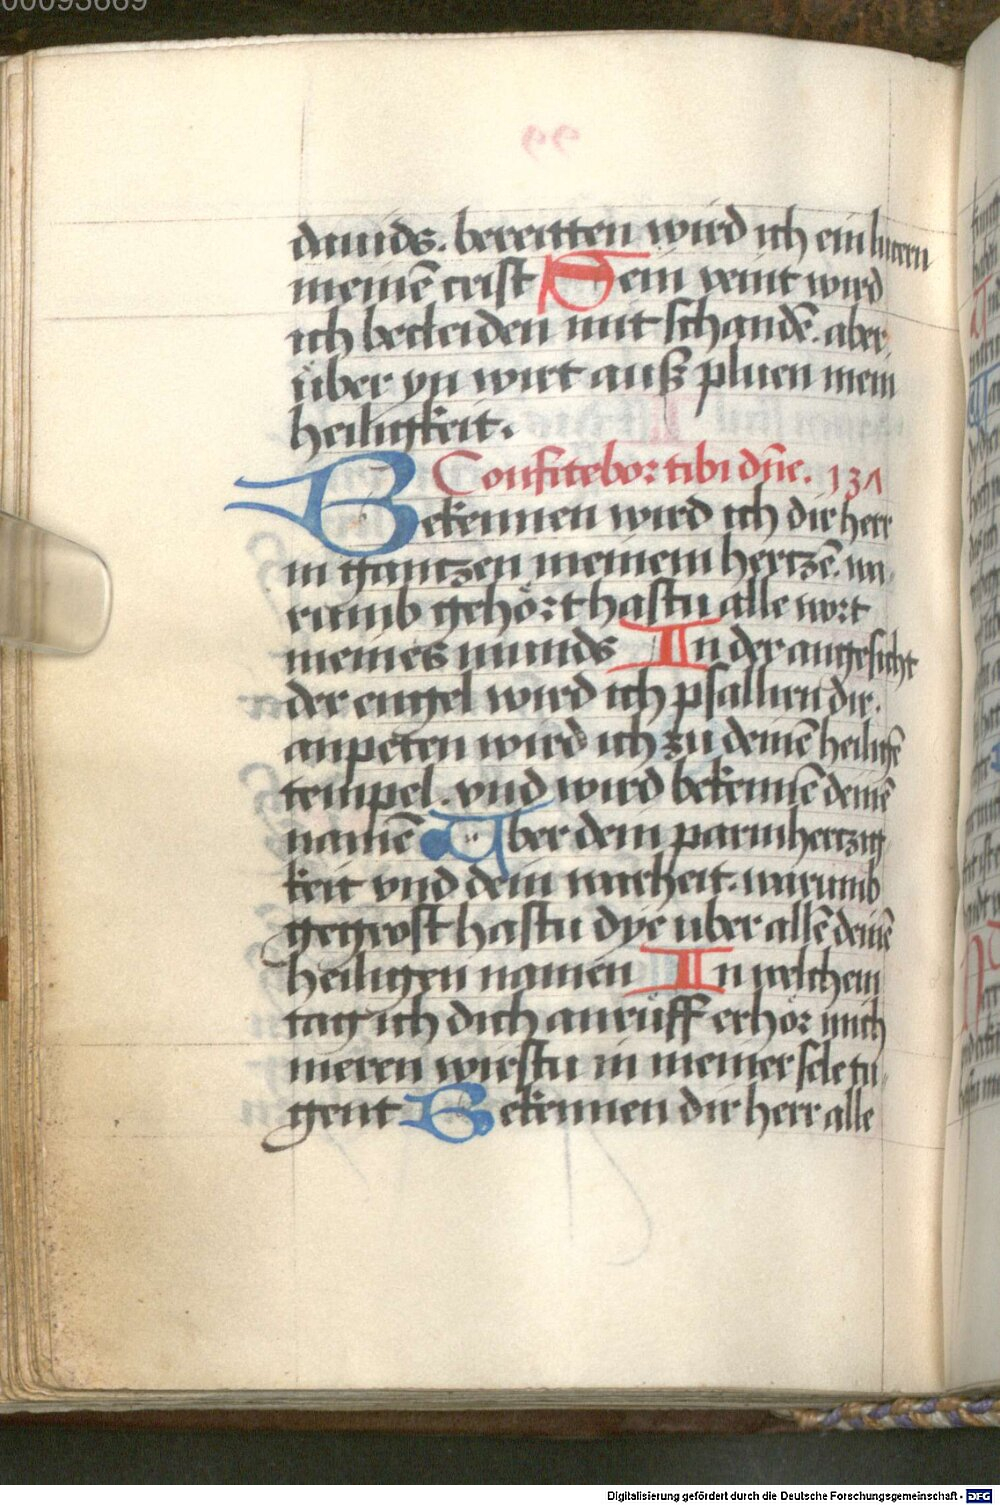 00093669
dauids. bereitten wird ich ein lucern
meinē crist Sein veint wird
ich becleiden mit schandē. aber
über yn wirt auß pluen mein
heiligkeit.
Confitebor tibi dn̄e. 137
Bekennen wird ich dir herr
in gantzen meinem hertzē. wa
rumb gehört hastu alle wort
meines munds In der angesicht
der engel wird ich psallirn dir.
anpeten wird ich zu deinē heiligē
tempel. vnd wird bekennē deinē
namē Über dein parmhertzig
keit vnd dein warheit. warumb
gegrost hastu dye uber allē deinē
heiligen namen In welchem
tag ich dich anrüff erhör mich
meren wirstu in meiner sele tu
gent Bekennen dir herr alle
Digitalisierung gefördert durch die Deutsche Forschungsgemeinschaft - DFG